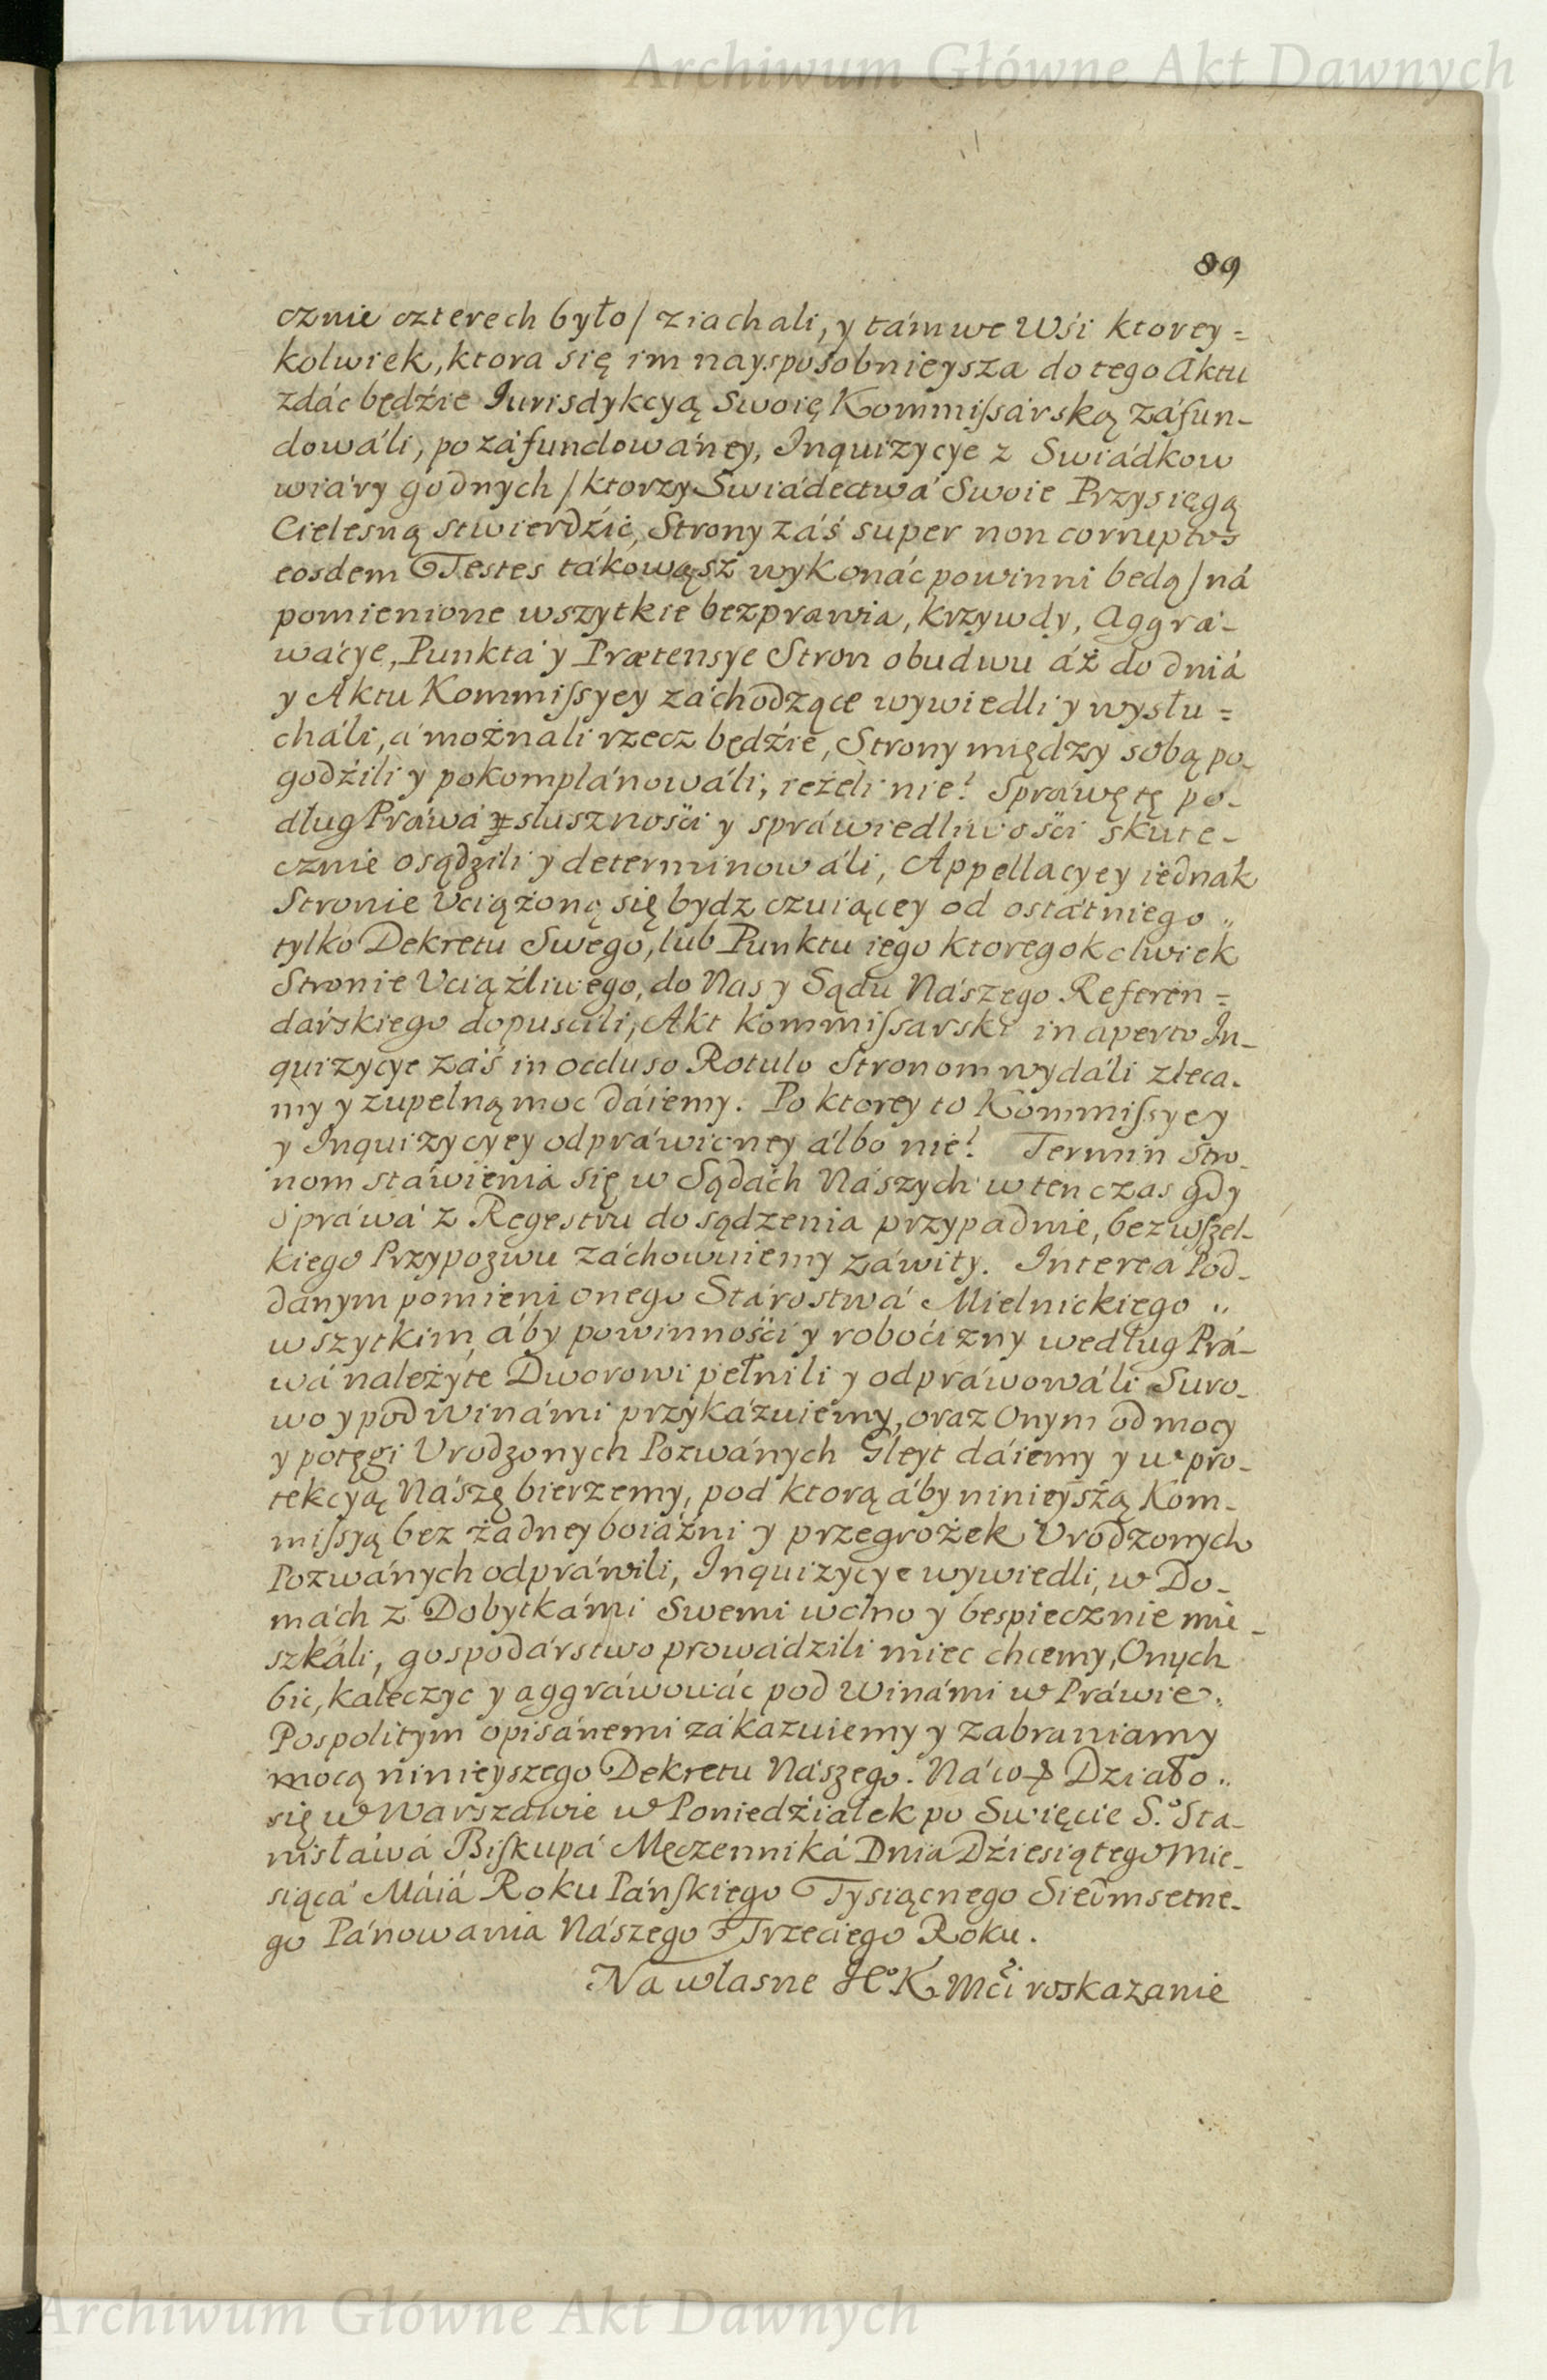 Archiwum Główne Akt Dawnych
89
cznie czterech było / ziachali, y tám we Wśi ktorey=
kolwiek, ktora się im naysposobnieysza do tego Aktu
zdáć będźie Iurisdykcyą Swoię Kommissárską záfun-
dowáli, po záfundowáney, Inquizycye z Swiádkow
wiáry godnych / ktorzy Swiádectwá Swoie Przysięgą
Cielesną stwierdźić, Strony záś super non corruptos
eosdem Testes tákowąsz wykonáć powinni bedą / ná
pomienione wszytkie bezprawia, krzywdy, Aggrá-
wácye, Punktá y Prætensye Stron obudwu áż do dniá
y Aktu Kommissyey záchodzące wywiedli y wysłu=
cháli, á możnali rzecz będźie, Strony między sobą po-
godźili y pokomplánowáli, ieżeli nie? Spráwę tę po-
dług Práwá słusznośći y spráwiedliwośći skute-
cznie osądzili y determinowáli, Appellacyey iednak
Stronie Vciążoną się bydz czuiącey od ostátniego
tylko Dekretu Swego, lub Punktu iego ktoregokolwiek
Stronie Vciążliwego, do Nas y Sądu Nászego Referen=
dárskiego dopuscili, Akt Kommissarski in aperto In-
quizycye záś in occluso Rotulo Stronom wydáli zleca-
my y zupełną moc dáiemy. Po ktorey to Kommissyey
y Inquizycyey odpráwioney álbo nie? Termin Stro-
nom stáwienia się w Sądách Nászych w ten czas gdy
Spráwá z Regestru do sądzenia przypadnie, bez wszel-
kiego Przypozwu záchowuiemy záwity. Interea Pod-
danym pomienionego Stárostwá Mielnickiego
wszytkim, áby powinnośći y roboćizny według Prá-
wá należyte Dworowi pełnili y odpráwowáli Suro-
wo y pod winámi przykázuiemy, oraz Onym od mocy
y potęgi Vrodzonych Pozwánych Gleyt dáiemy y w pro-
tekcyą Nászę bierzemy, pod ktorą áby ninieyszą Kom-
missyą bez żadney boiáźni y przegrożek Vrodzonych
Pozwánych odpráwili, Inquizycye wywiedli, w Do-
mách z Dobytkámi Swemi wolno y bespiecznie mie-
szkáli, gospodárstwo prowádzili miec chcemy, Onych
bic, kaleczyc y aggráwowác pod winámi w Práwie
Pospolitym opisánemi zákazuiemy y zabraniamy
mocą ninieyszego Dekretu Nászego. Ná co Działo
się w Warszáwie w Poniedźiałek po Swięcie S.º Sta-
nisłáwá Biskupá Męczenniká Dnia Dźiesiątego Mie-
siącá Máiá Roku Páńskiego Tysiącnego Siedmsetne-
go Pánowania Nászego Trzeciego Roku.
Na własne Jº K Mći roskazanie
Archiwum Główne Akt Dawnych